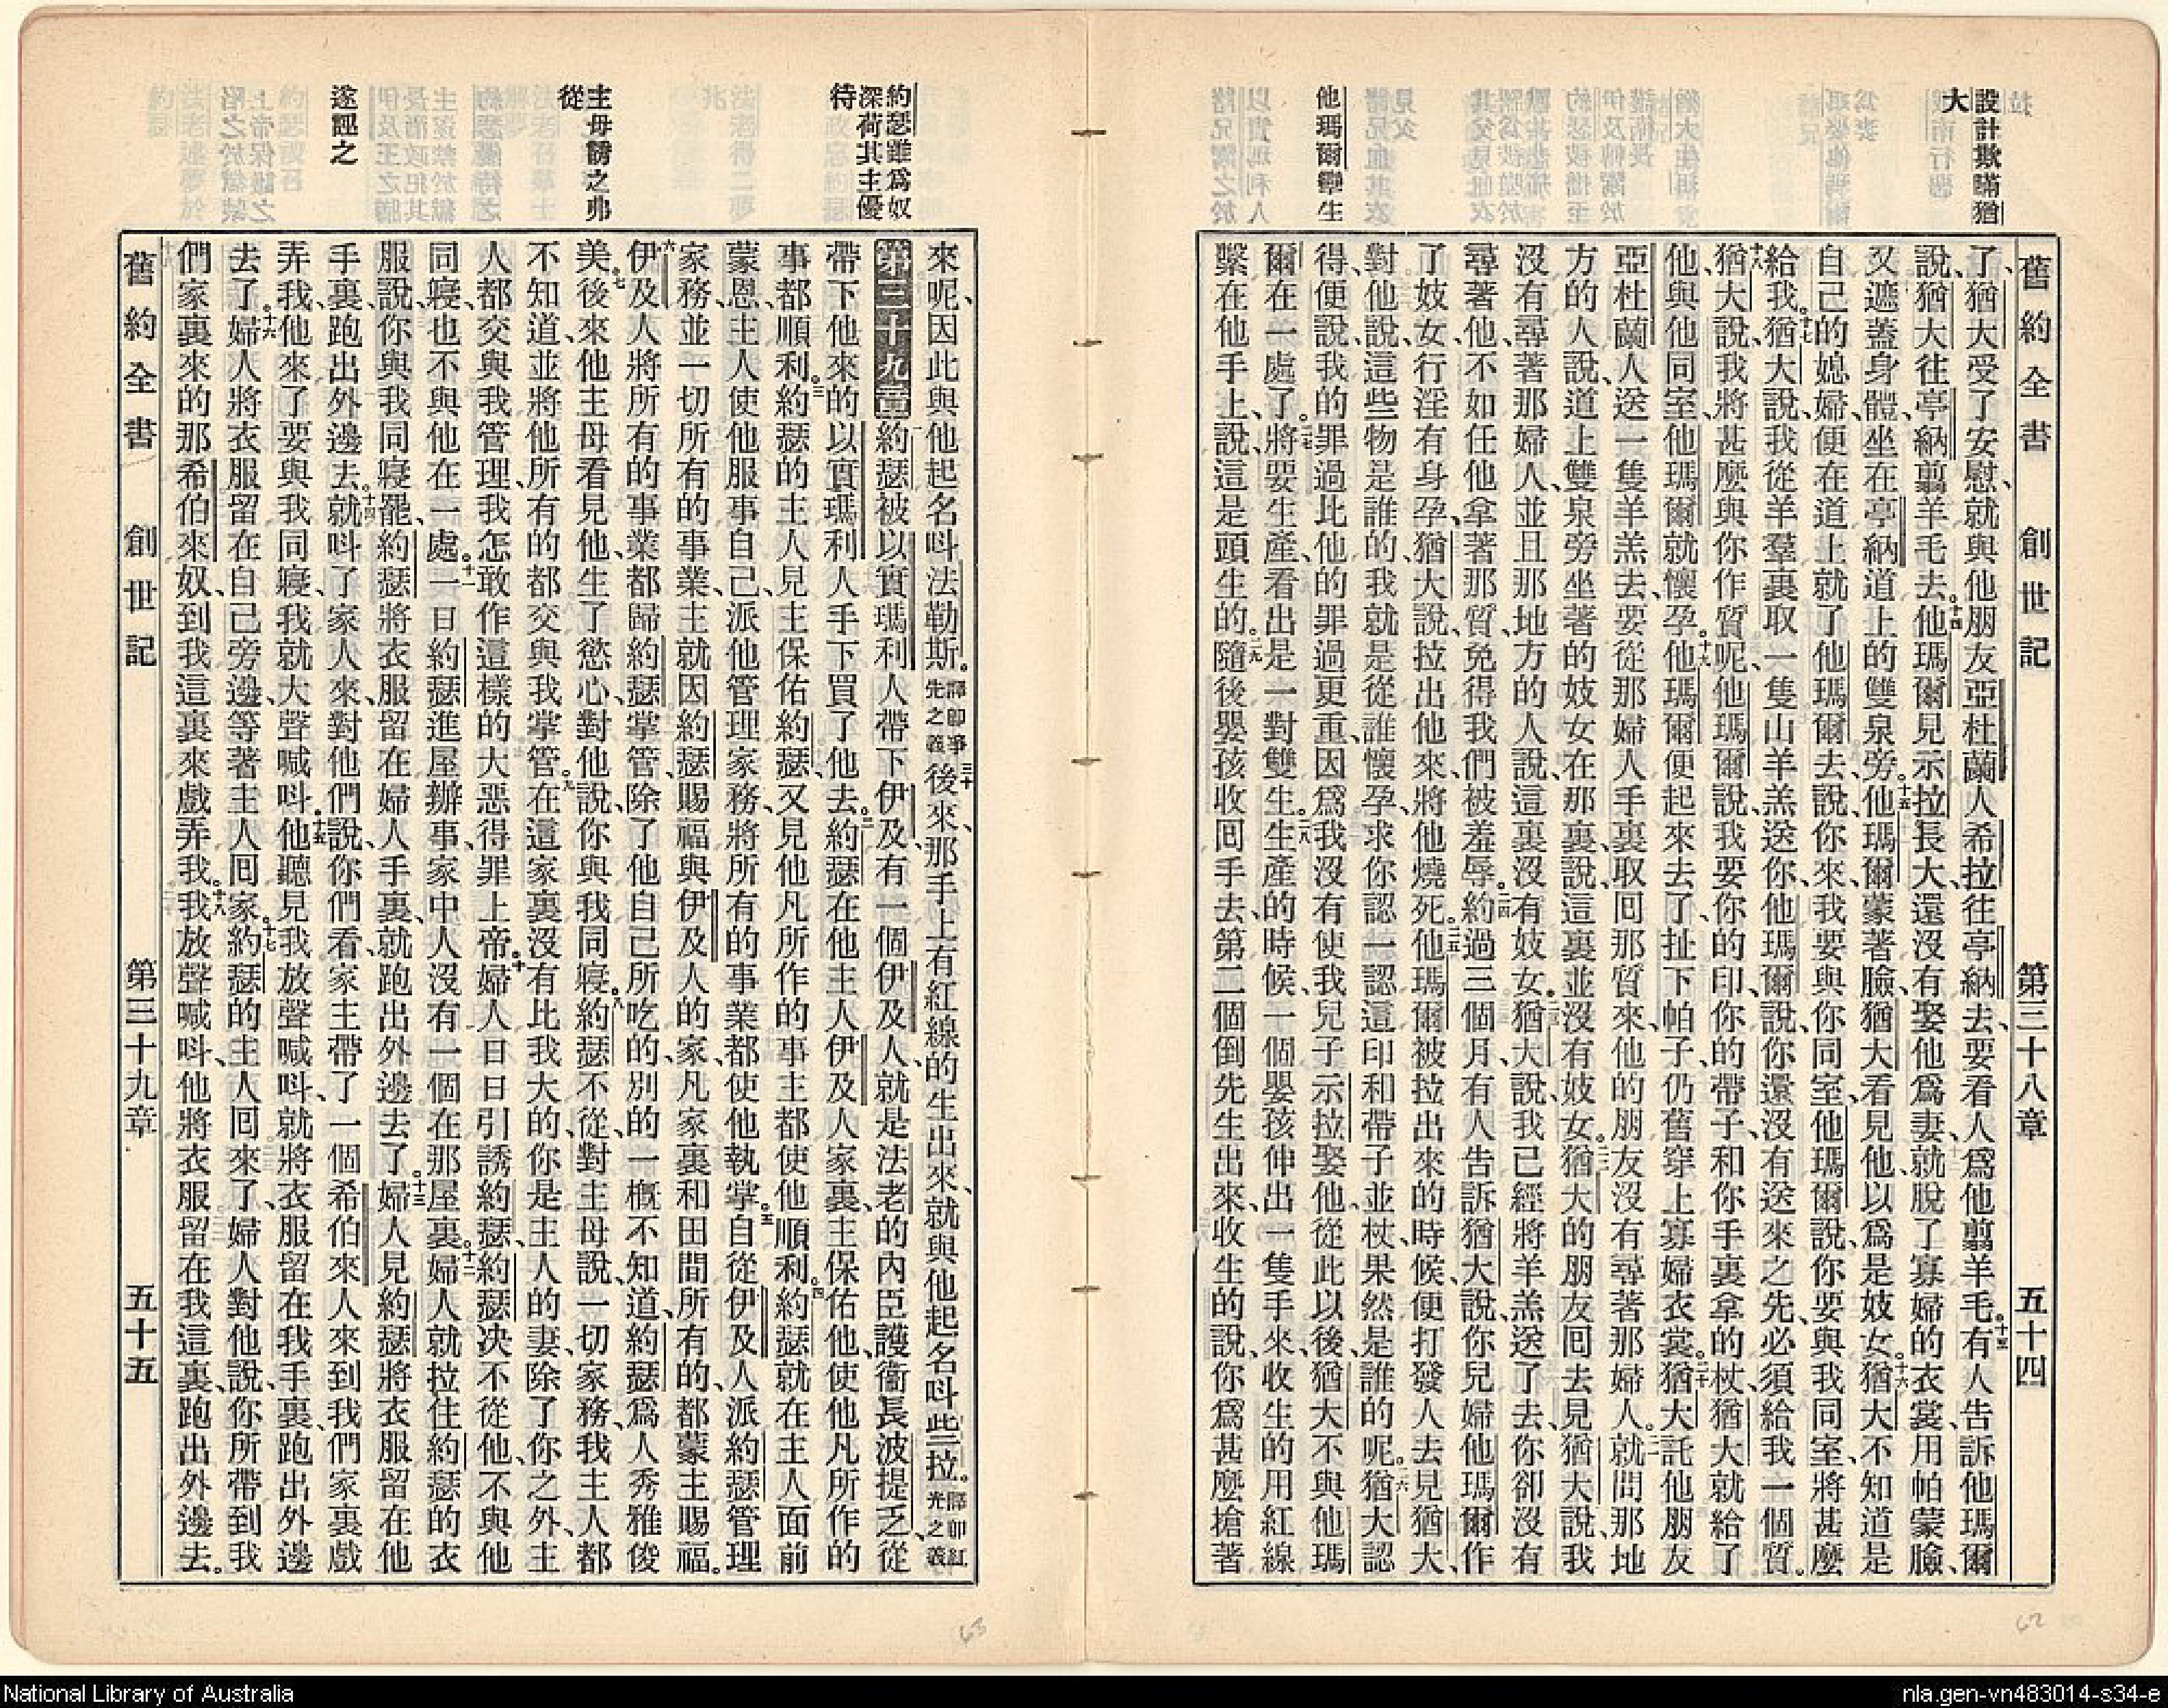 設計欺瞞猶
大
他瑪爾孿生
舊約全書 創世記 第三十八章 五十四
了、猶大受了安慰、就與他朋友亞杜蘭人希拉往亭納去、要看人爲他翦羊毛。十三有人告訴他瑪爾
說、猶大往亭納翦羊毛去。十四他瑪爾見示拉長大、還沒有娶他爲妻、就脫了寡婦的衣裳、用帕蒙臉、
又遮蓋身體、坐在亭納道上的雙泉旁。十五他瑪爾蒙著臉、猶大看見他、以爲是妓女。十六猶大不知道是
自己的媳婦、便在道上就了他瑪爾去、說、你來、我要與你同室、他瑪爾說、你要與我同室、將甚麼
給我。十七猶大說、我從羊羣裏取一隻山羊羔送你、他瑪爾說、你還沒有送來之先、必須給我一個質。
十八猶大說、我將甚麼與你作質呢、他瑪爾說、我要你的印、你的帶子、和你手裏拿的杖、猶大就給了
他、與他同室、他瑪爾就懷孕。十九他瑪爾便起來去了、扯下帕子、仍舊穿上寡婦衣裳。二十猶大託他朋友
亞杜蘭人送一隻羊羔去、要從那婦人手裏取回那質來、他的朋友沒有尋著那婦人。二一就問那地
方的人說、道上雙泉旁坐著的妓女在那裏、說、這裏並沒有妓女。二二猶大的朋友回去見猶大說、我
沒有尋著那婦人、並且那地方的人說、這裏沒有妓女。二三猶大說、我已經將羊羔送了去、你卻沒有
尋著他、不如任他拿著那質、免得我們被羞辱。二四約過三個月、有人告訴猶大說、你兒婦他瑪爾作
了妓女、行淫有身孕、猶大說、拉出他來、將他燒死。二五他瑪爾被拉出來的時候、便打發人去見猶大、
對他說、這些物是誰的、我就是從誰懷孕、求你認一認、這印和帶子並杖、果然是誰的呢。二六猶大認
得、便說、我的罪過比他的罪過更重、因爲我沒有使我兒子示拉娶他、從此以後、猶大不與他瑪
爾在一處了。二七將要生產、看出是一對雙生。二八生產的時候、一個嬰孩伸出一隻手來、收生的用紅線
繫在他手上、說、這是頭生的。二九隨後嬰孩收回手去、第二個倒先生出來、收生的說、你爲甚麼搶著
約瑟雖爲奴
深荷其主優
待
主母誘之弗
從
遂誣之
來呢、因此與他起名叫法勒斯。譯卽爭先之義三十後來、那手上有紅線的生出來、就與他起名叫些拉。譯卽紅光之義
第三十九章 約瑟被以實瑪利人帶下伊及、有一個伊及人、就是法老的內臣護衞長波提乏、從
帶下他來的以實瑪利人手下買了他去。二約瑟在他主人伊及人家裏、主保佑他、使他凡所作的
事都順利。三約瑟的主人見主保佑約瑟、又見他凡所作的事主都使他順利。四約瑟就在主人面前
蒙恩、主人使他服事自己、派他管理家務、將所有的事業都使他執掌。五自從伊及人派約瑟管理
家務、並一切所有的事業、主就因約瑟賜福與伊及人的家、凡家裏和田間所有的、都蒙主賜福。
六伊及人將所有的事業都歸約瑟掌管、除了他自己所吃的、別的一槪不知道、約瑟爲人秀雅俊
美。七後來他主母看見他、生了慾心、對他說、你與我同寢。八約瑟不從、對主母說、一切家務、我主人都
不知道、並將他所有的都交與我掌管。九在這家裏沒有比我大的、你是主人的妻、除了你之外、主
人都交與我管理、我怎敢作這樣的大惡、得罪上帝。十婦人日日引誘約瑟、約瑟決不從他、不與他
同寢、也不與他在一處。十一一日約瑟進屋辦事、家中人沒有一個在那屋裏。十二婦人就拉住約瑟的衣
服說、你與我同寢罷、約瑟將衣服留在婦人手裏、就跑出外邊去了。十三婦人見約瑟將衣服留在他
手裏、跑出外邊去。十四就叫了家人來、對他們說、你們看、家主帶了一個希伯來人來到我們家裏戲
弄我、他來了要與我同寢、我就大聲喊叫。十五他聽見我放聲喊叫、就將衣服留在我手裏、跑出外邊
去了。十六婦人將衣服留在自己旁邊、等著主人回家。十七約瑟的主人回來了、婦人對他說、你所帶到我
們家裏來的那希伯來奴、到我這裏來戲弄我。十八我放聲喊叫、他將衣服留在我這裏、跑出外邊去。
舊約全書 創世記 第三十九章 五十五
62
63
National Library of Australia
nla.gen-vn483014-s34-e